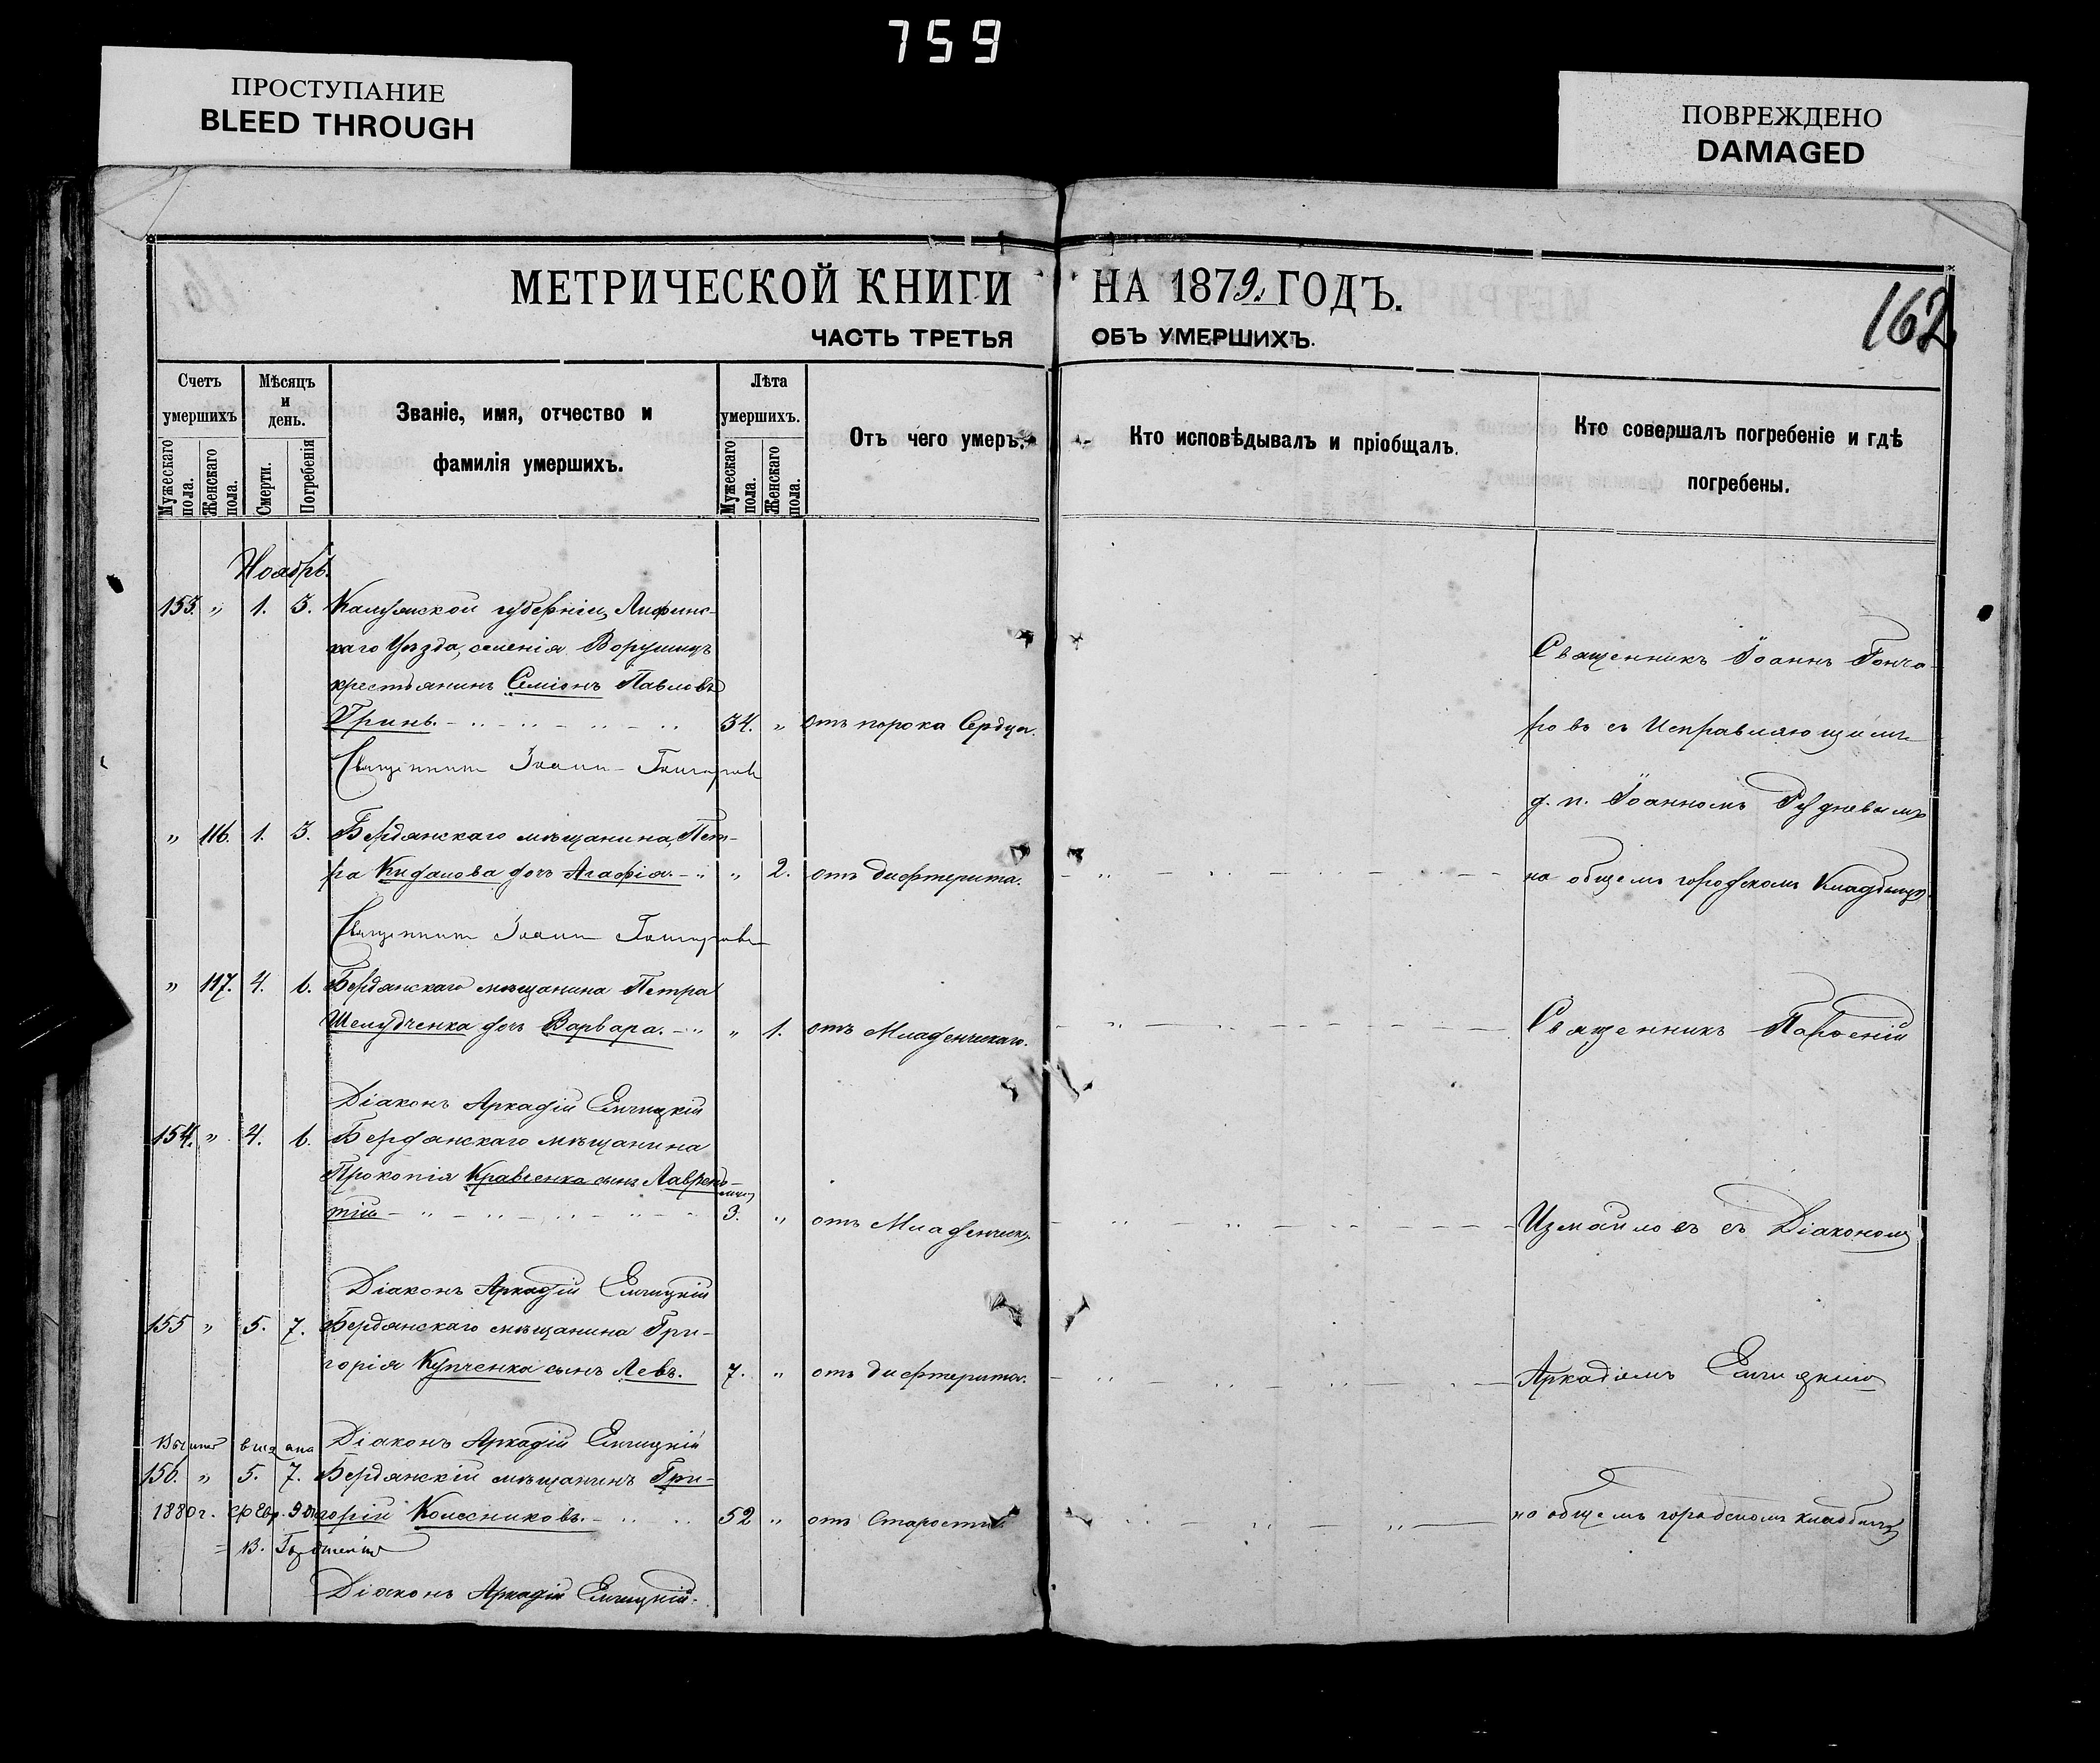 759
ПРОСТУПАНИЕ
BLEED THROUGH
ПОВРЕЖДЕНО
DAMAGED
МЕТРИЧЕСКОЙ КНИГИ НА 1879. ГОДЪ.
ЧАСТЬ ТРЕТЬЯ ОБЪ УМЕРШИХЪ.
162
Счетъ умершихъ
Мужескаго пола.
Женскаго пола.
Мѣсяцъ и день.
Смерти.
Погребенія
Званіе, имя, отчество и
фамилія умершихъ.
Лѣта умершихъ.
Мужескаго пола.
Женскаго пола.
Отъ чего умеръ.
Кто исповѣдывалъ и пріобщалъ.
Кто совершалъ погребеніе и гдѣ
погребены.
Ноябрь.
153. „ 1. 3. Калужской губерніи,
каго Уѣзда, селенія
крестьянинъ Семіонъ Павловъ
Гринь. 34. „ отъ порока Сердца.
Священникъ Іоаннъ Гончаровъ
„ 116. 1. 3. Бердянскаго мѣщанина, Пет-
ра дочь Агафія. „ 2. отъ дифтерита.
Священникъ Іоаннъ Гончаровъ
Священникъ Іоаннъ Гонча-
ровъ съ Исправляющимъ
д. п. Іоанномъ Рудневымъ
на общемъ городскомъ Кладбищѣ.
„ 117. 4. 6. Бердянскаго мѣщанина Петра
Шелудченка дочь Варвара. „ 1. отъ Младенческаго.
Діаконъ Аркадій
154. „ 4. 6. Бердянскаго мѣщанина
Прокопія Кравченка сынъ Лаврен-
тій 3. „ отъ Младенческ.
Діаконъ Аркадій
155 „ 5. 7. Бердянскаго мѣщанина Гри-
горія Купченка сынъ Левъ. 7. „ отъ дифтерита.
Діаконъ Аркадій
156. „ 5. 7. Бердянскій мѣщанинъ Гри-
1880 г. горій Колесниковъ. 52 „ отъ Старости.
Діаконъ Аркадій
Священникъ Парѳеній
Измайловъ съ Діакономъ
Аркадіемъ
на общемъ городскомъ кладбищѣ